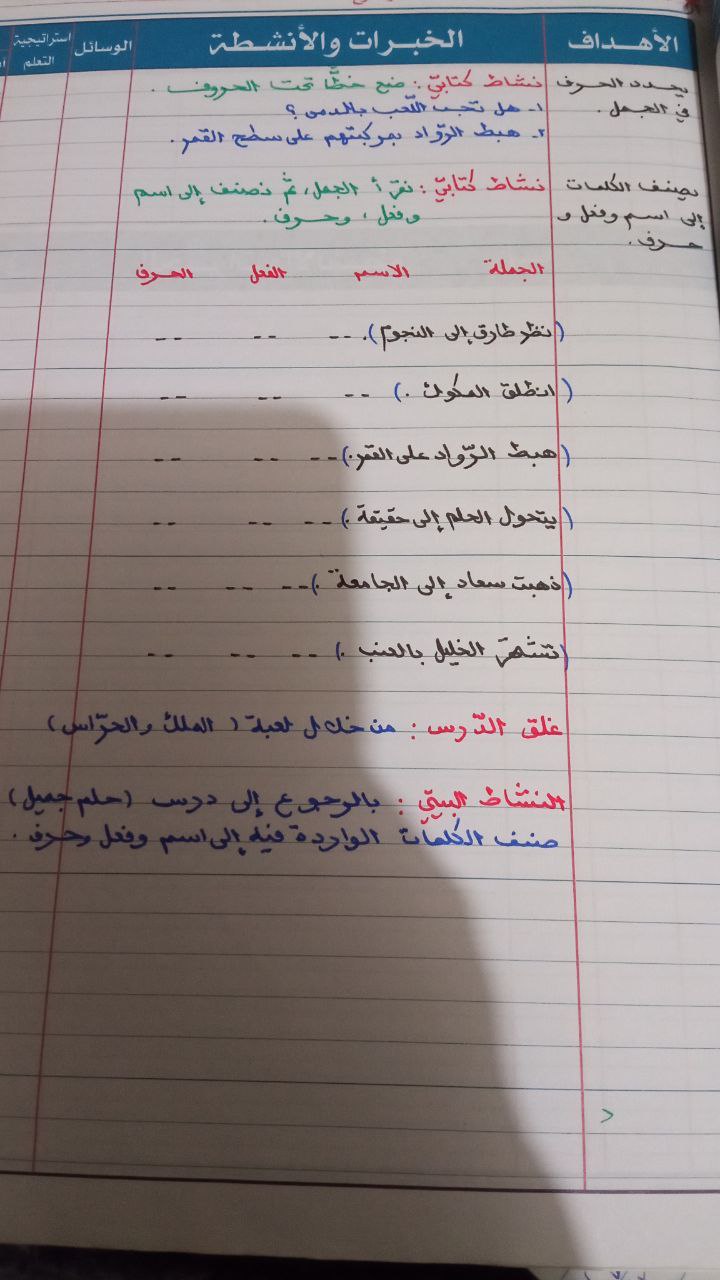 الأهداف الخبرات والأنشطة الوسائل استراتيجية التعلم
يحدد الحرف في الجمل .
نشاط كتابيّ : ضع خطًّا تحت الحروف .
١- هل تحب اللّعب بالدمى ؟
٢- هبط الرّواد بمركبتهم على سطح القمر .
يصنف الكلمات
إلى اسم وفعل و
حرف .
نشاط كتابيّ : نقرأ الجمل ، ثمّ نصنف إلى اسم
وفعل ، وحرف .
الجملة الاسم الفعل الحرف
(نظر طارق إلى النجوم). -- -- --
(انطلق المكوك .) -- -- --
(هبط الرّواد على القمر.) -- -- --
(يتحول الحلم إلى حقيقة .) -- -- --
(ذهبت سعاد إلى الجامعة .) -- -- --
(تشتهر الخليل بالعنب .) -- -- --
غلق الدّرس : من خلال لعبة ( الملك والحرّاس)
النشاط البيتيّ : بالرجوع إلى درس (حلم جميل)
صنف الكلمات الواردة فيه إلى اسم وفعل وحرف .